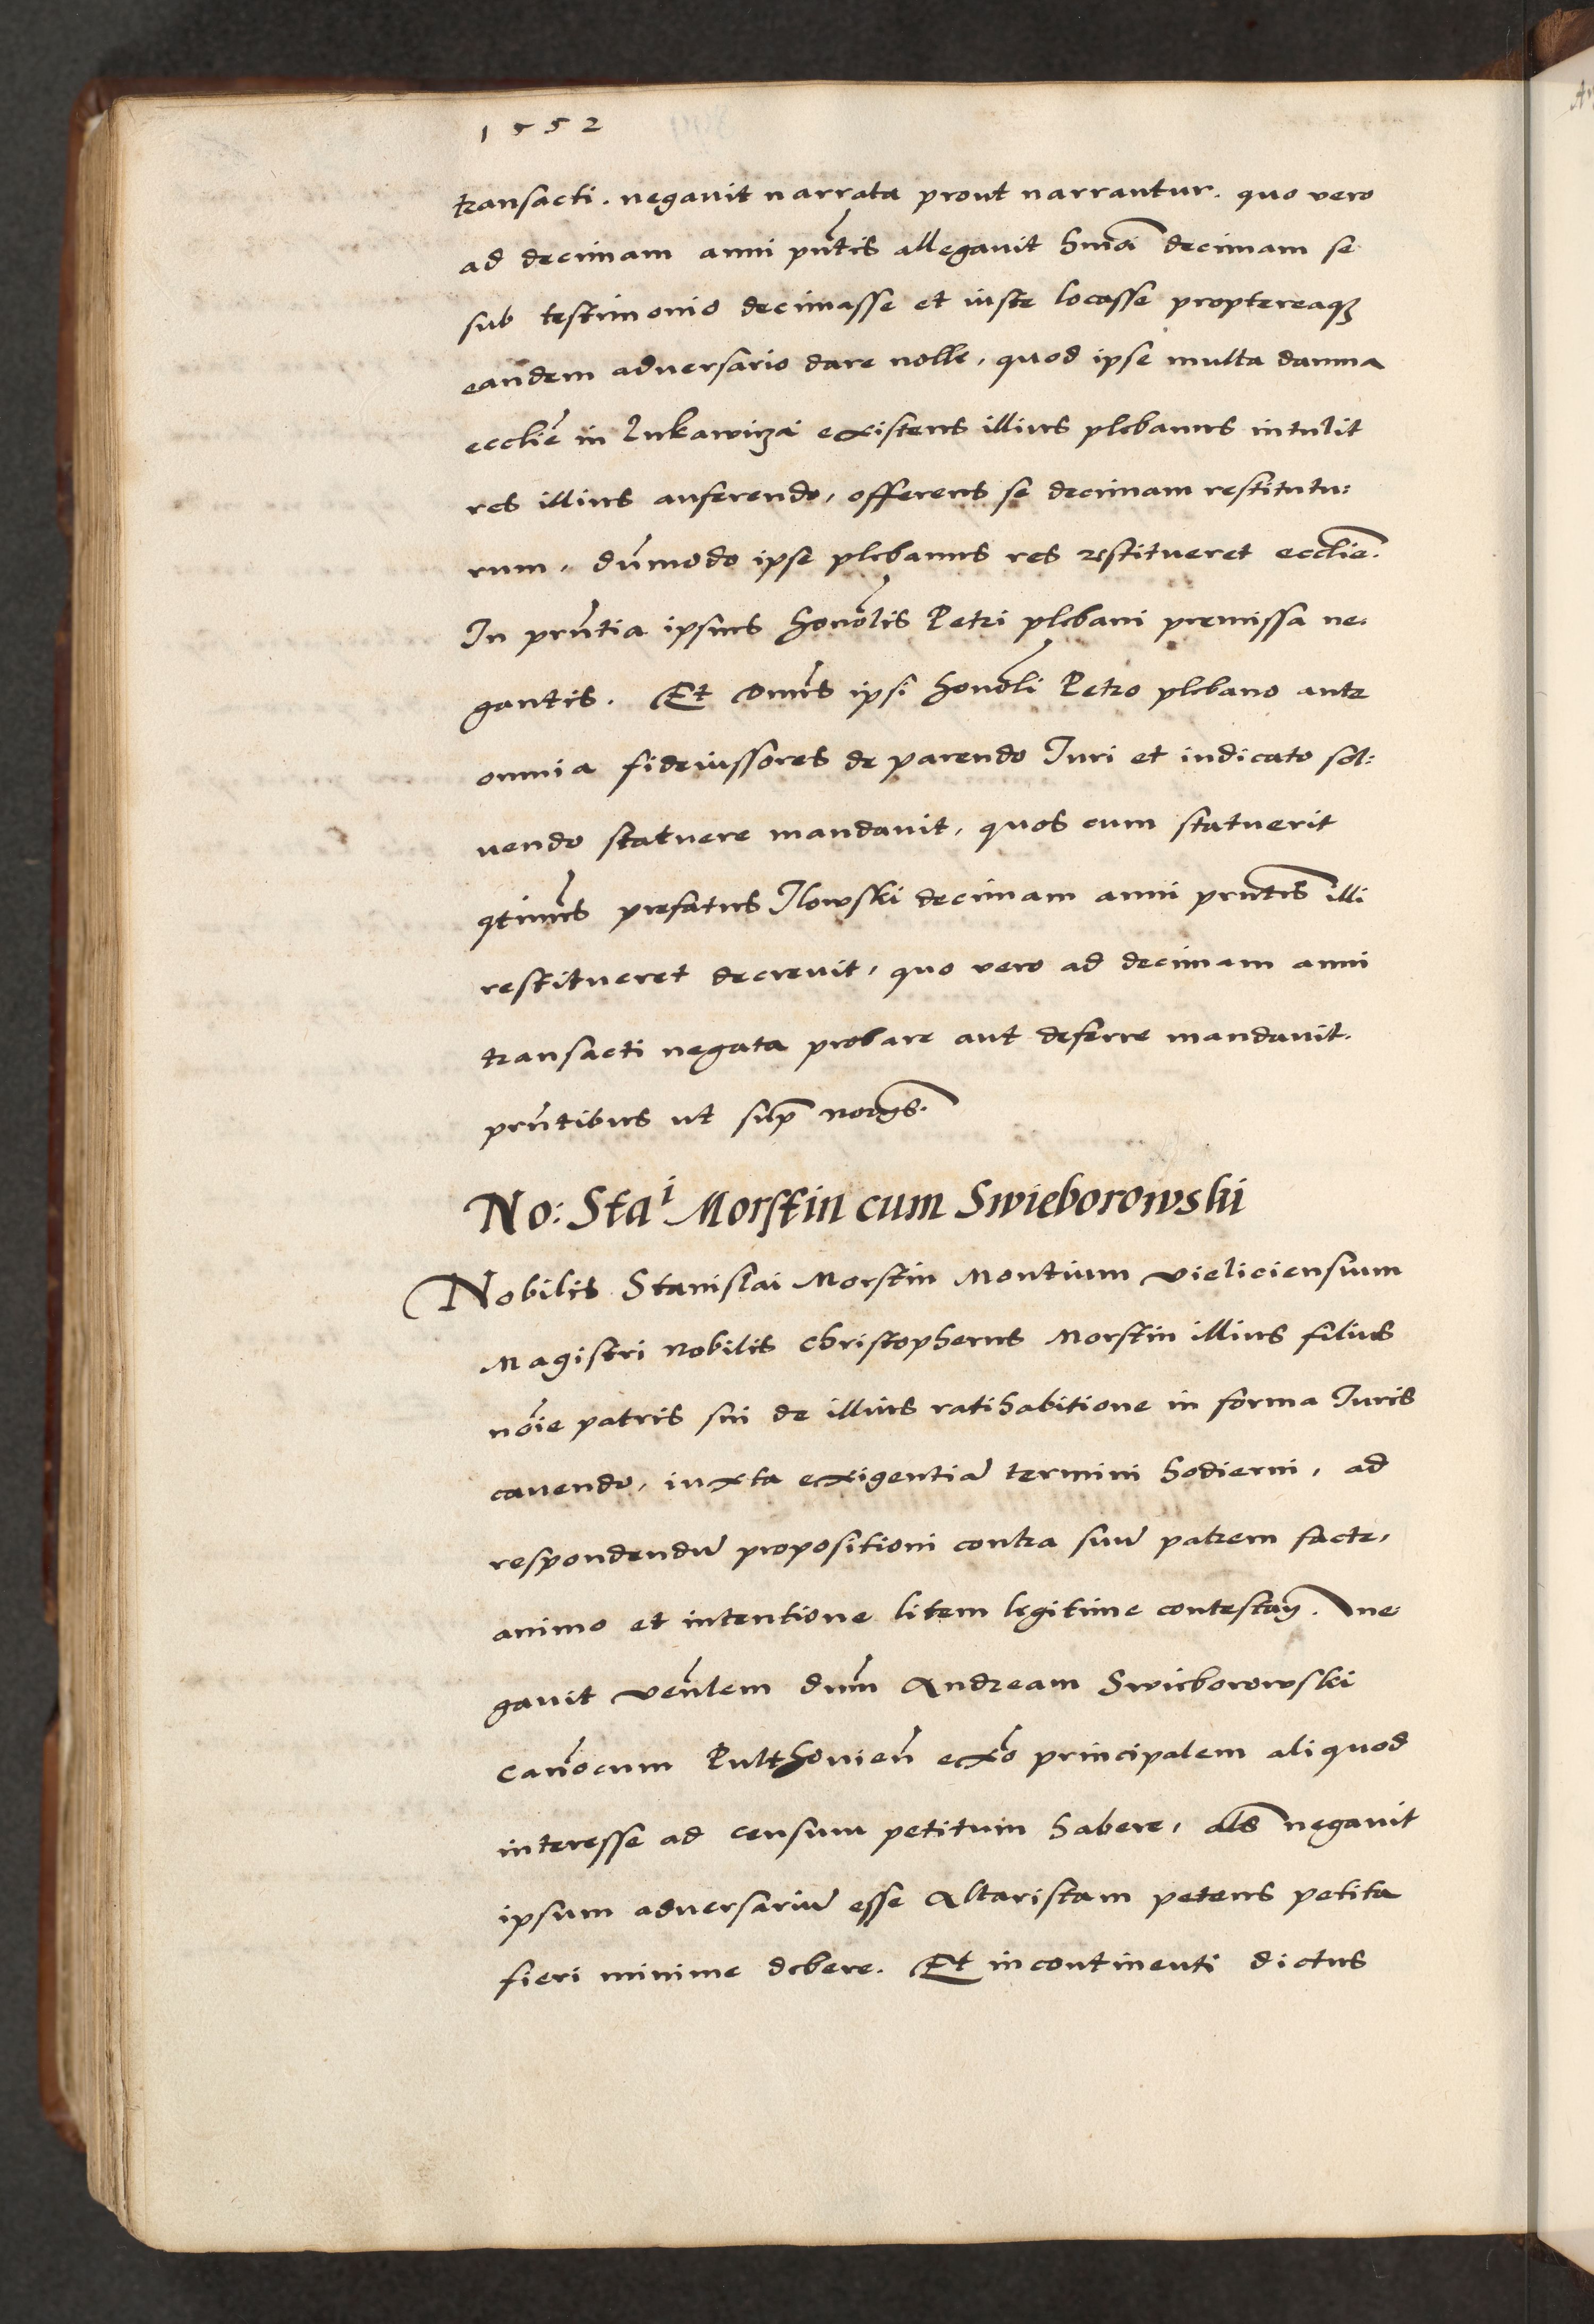 1552
transacti. negavit narrata prout narrantur. quo vero
ad decimam anni pn̄tis allegavit hmōi decimam se
sub testimonio decimasse et iuste locasse propterea𝔮ꝫ
eandem adversario dare nolle, quod ipse multa damna
ecclīe in Lukawicza existens illius plebanus intulit
res illius auferendo, offerens se decimam restitutu:
rum, dūmodo ipse plebanus res restitueret ecclīe.
In prn̄tia ipsius honōlis Petri plebani premissa ne,
gantis. Et Dom̄s ipsi honōli Petro plebano ante
omnia fideiussores de parendo Iuri et iudicato sol:
uendo statuere mandauit, quos cum statuerit
ꝯtinuis prefatus Ilowski decimam anni prn̄tis illi
restitueret decrevit, quo vero ad decimam anni
transacti negata probare aut deferre mandavit.
prn̄tibus ut sup̄ norgs.
No: Staⁱ Morstin cum Swieborowski
Nobilis Stanislai Morstin Montium vieliciensium
Magistri Nobilis Christopherus Morstin illius filius
nōie patris sui de illius ratihabitione in forma Iuris
cauendo, iuxta exigentiā termini hodierni, ad
respondendū propositioni contra suū patrem facte,
animo et intentione litem legitime contestan̄. ne
gauit ven̄lem dn̄m Andream Swieborowski
Can̄ocum Pulthovien̄ exō principalem aliquod
interesse ad censum petitum habere, als̄ negauit
ipsum adversariū esse Altaristam petens petita
fieri minime debere. Et incontinenti dictus